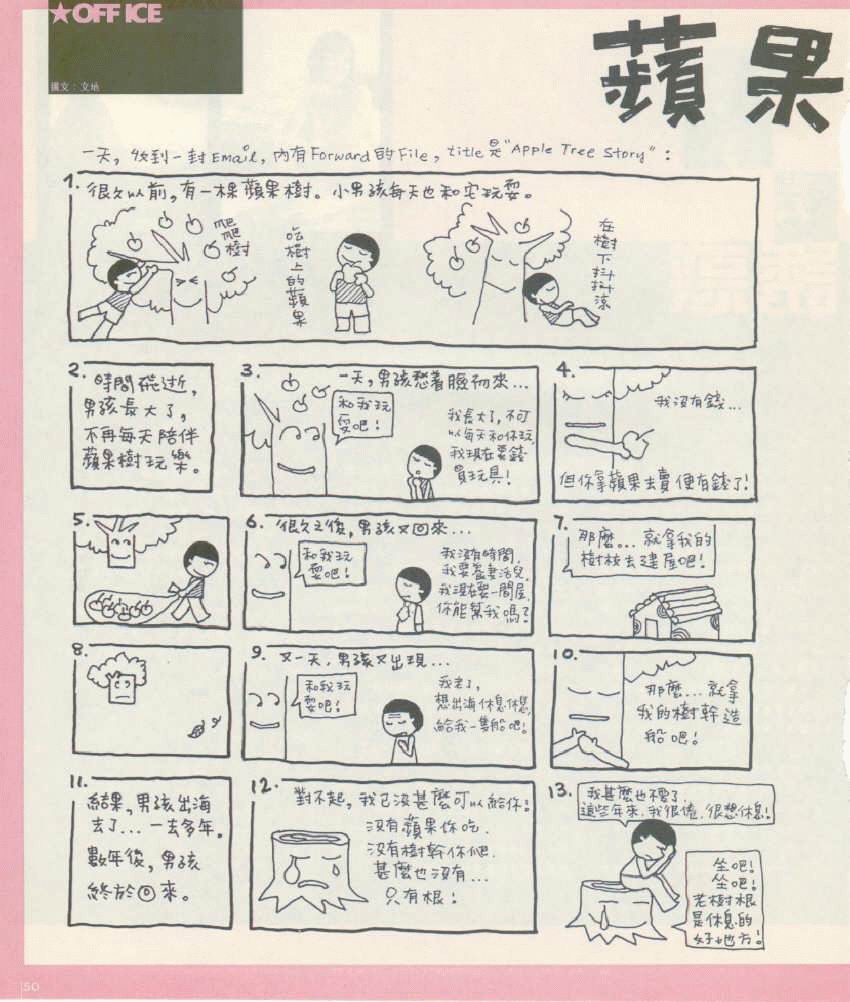 ★OFFICE
撰文：文地
蘋果
一天，收到一封Email，內有Forward的File，title是"Apple Tree Story"：
1. 很久以前，有一棵蘋果樹。小男孩每天也和它玩耍。
爬爬樹
吃樹上的蘋果
在樹下抖抖涼
2. 時間飛逝，
男孩長大了，
不再每天陪伴
蘋果樹玩樂。
3. 一天，男孩愁著臉初來...
和我玩
耍吧！
我長大了，不可
以每天和你玩，
我現在要錢
買玩具！
4.
我沒有錢...
但你拿蘋果去賣便有錢了！
5.
6. 很久之後，男孩又回來...
和我玩
耍吧！
我沒有時間，
我要養妻活兒，
我現在要一間屋，
你能幫我嗎？
7.
那麼...就拿我的
樹枝去建屋吧！
8.
9. 又一天，男孩又出現...
和我玩
耍吧！
我老了，
想出海休息休息，
給我一隻船吧！
10.
那麼...就拿
我的樹幹造
船吧！
11.
結果，男孩出海
去了...一去多年。
數年後，男孩
終於回來。
12.
對不起，我已沒甚麼可以給你！
沒有蘋果你吃，
沒有樹幹你爬，
甚麼也沒有...
只有根！
13.
我甚麼也不要了，
這些年來，我很倦，很想休息！
坐吧！
坐吧！
老樹根
是休息的
好地方！
50